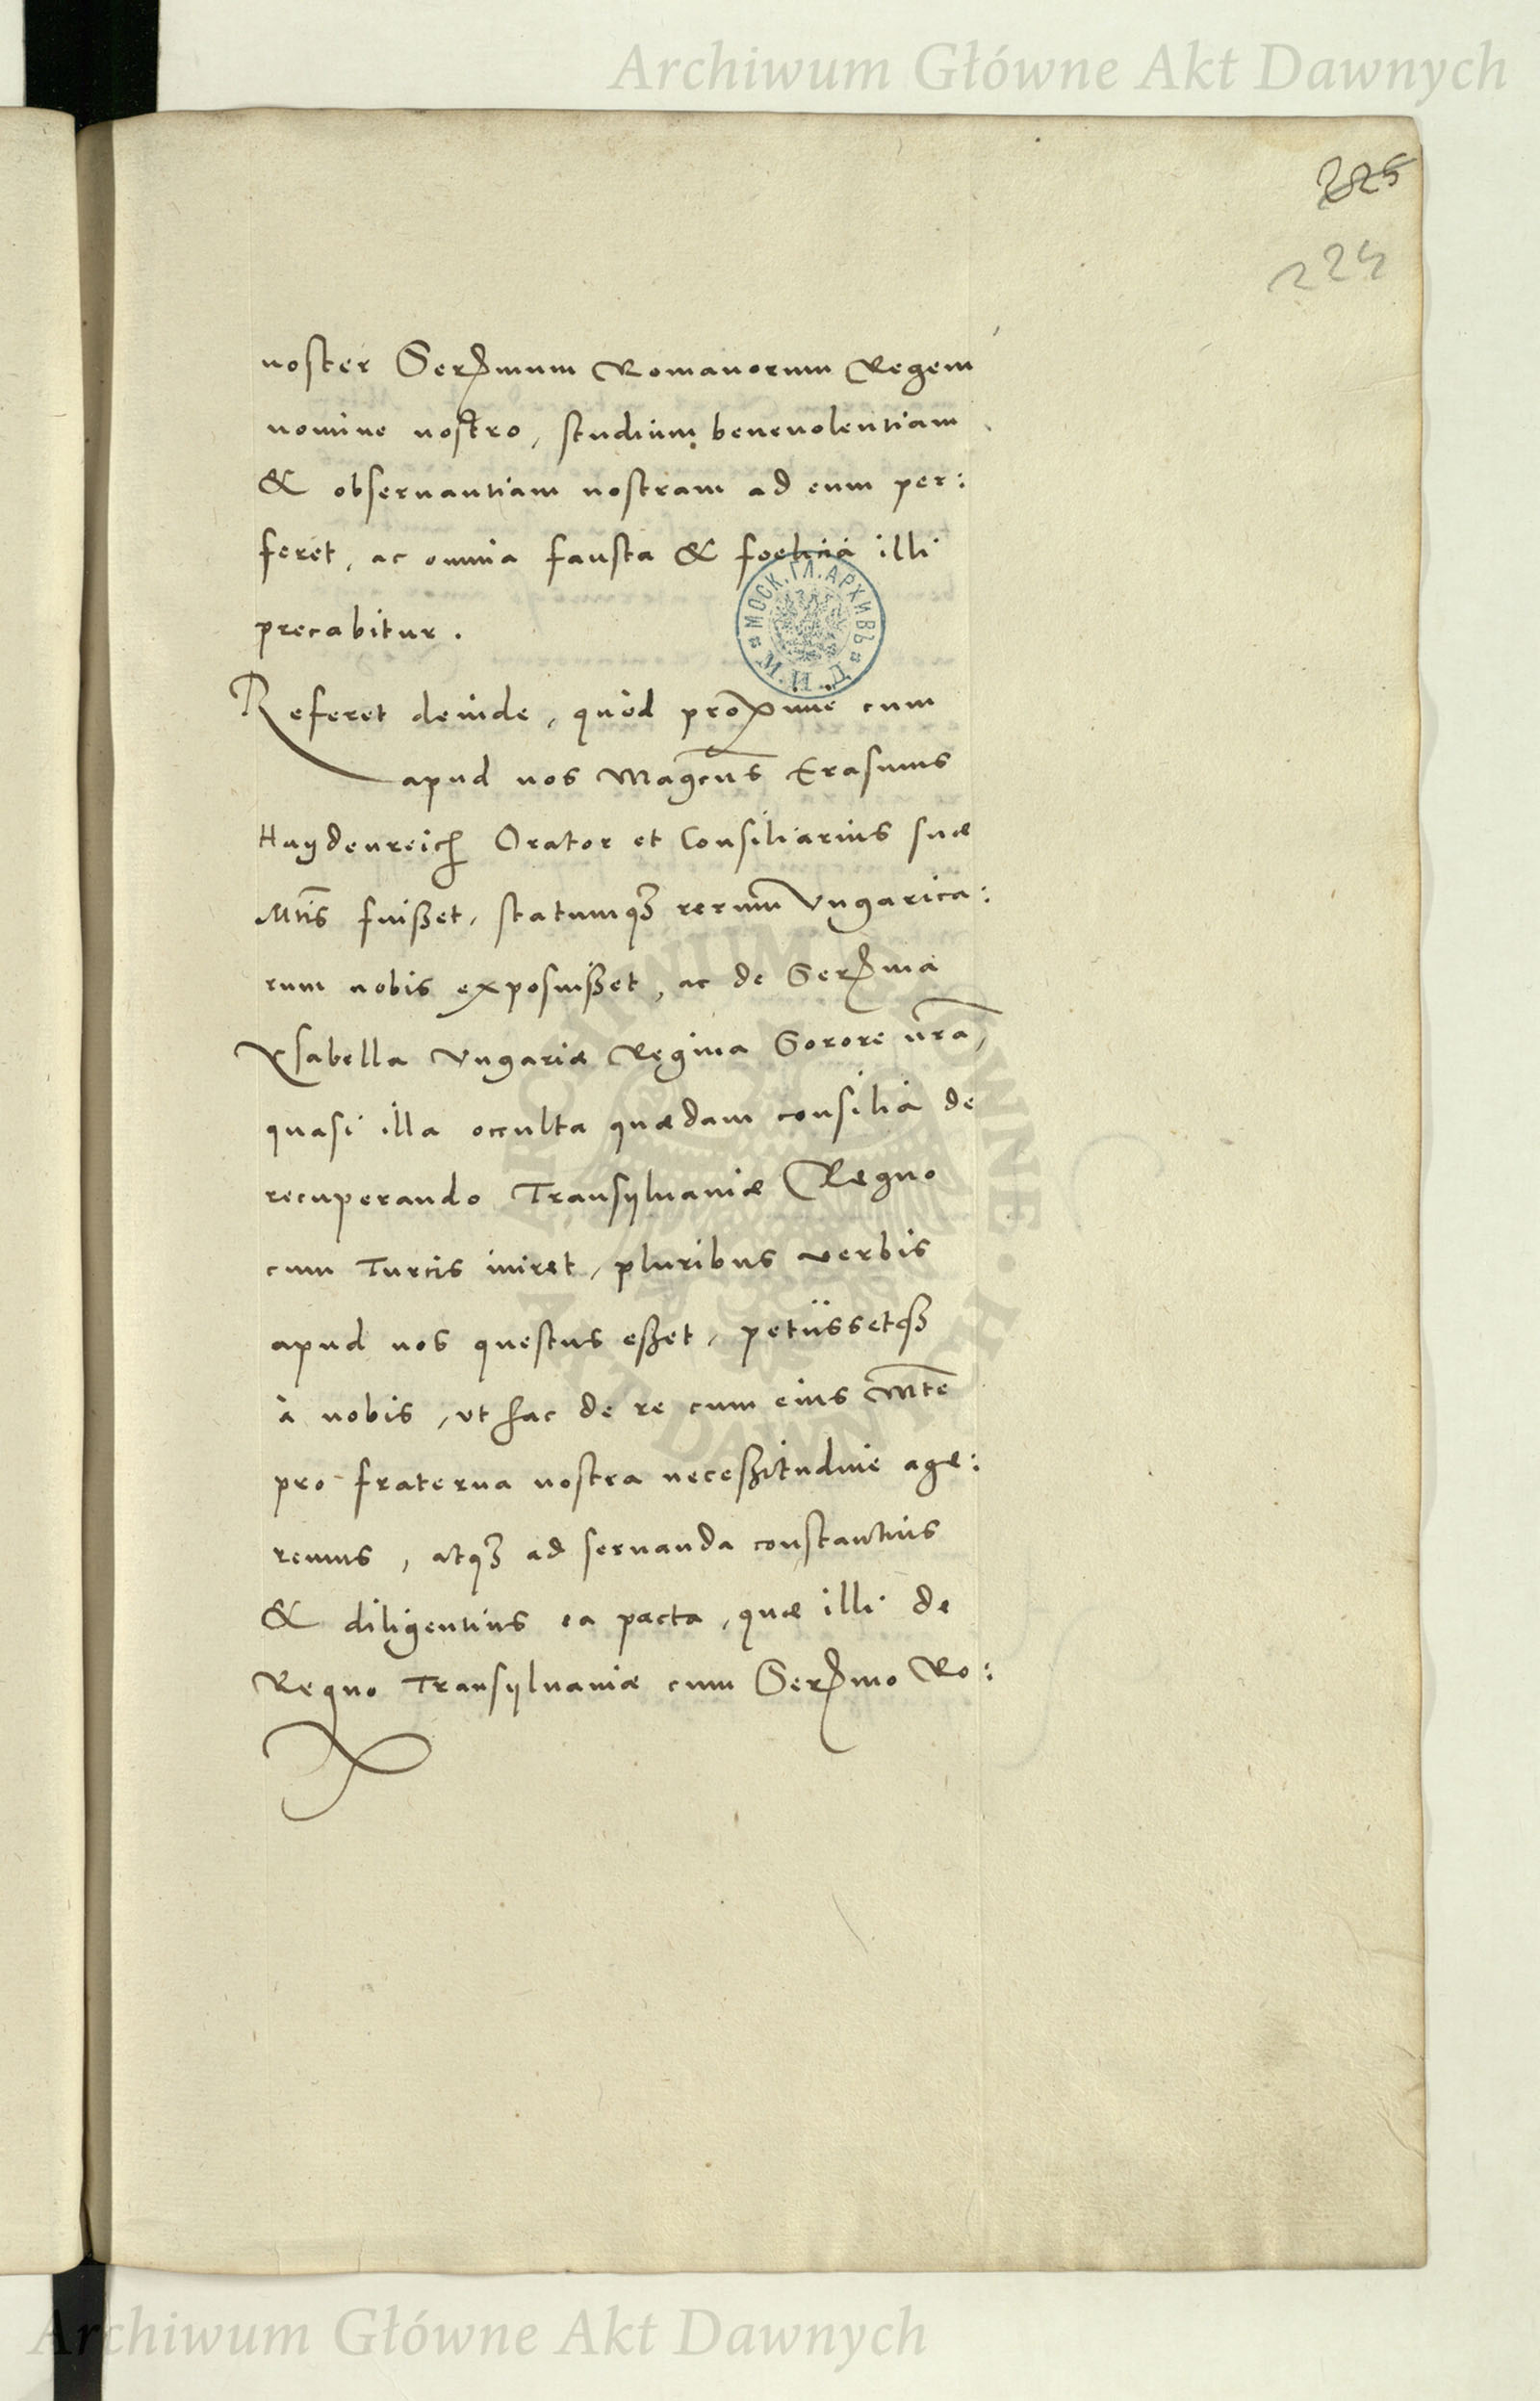 Archiwum Główne Akt Dawnych
225
224
noster Serenmum Romanorum Regem
nomine nostro, studium, benevolentiam
& obseruantiam nostram ad eum per:
feret, ac omnia fausta & foelicia illi
precabitur.
МОСК. ГЛ. АРХИВЪ М. И. Д.
Referet deinde, quòd proxime cum
apud nos Magcus Erasmus
Haydenreich Orator et Consiliarius suæ
Mtis fuisset, statumq3 rerum Vngarica:
rum nobis exposuisset, ac de Serenma
Ysabella Vngariæ Regina Sorore nra,
quasi illa occulta quædam consilia de
recuperando Transyluaniæ Regno
cum Turcis iniret, pluribus verbis
apud nos questus esset, petiissetq3
à nobis, vt hac de re cum eius Mte
pro fraterna nostra necessitudine age:
remus, atq3 ad seruanda constantius
& diligentius ea pacta, quæ illi de
Regno Transyluaniæ cum Serenmo Ro:
ARCHIWUM GŁÓWNE AKT DAWNYCH
Archiwum Główne Akt Dawnych